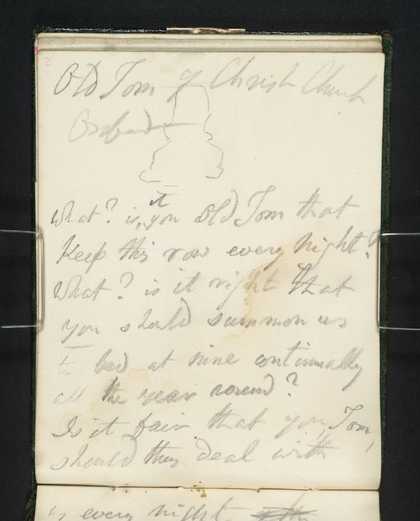 Old Tom of Christ Church
Oxford
What? is it you Old Tom that
Keep this row every night?
What? is it right that
you should summon us
to bed at nine continually
all the year round?
Is it fair that you, Tom,
should thus deal with
us every night